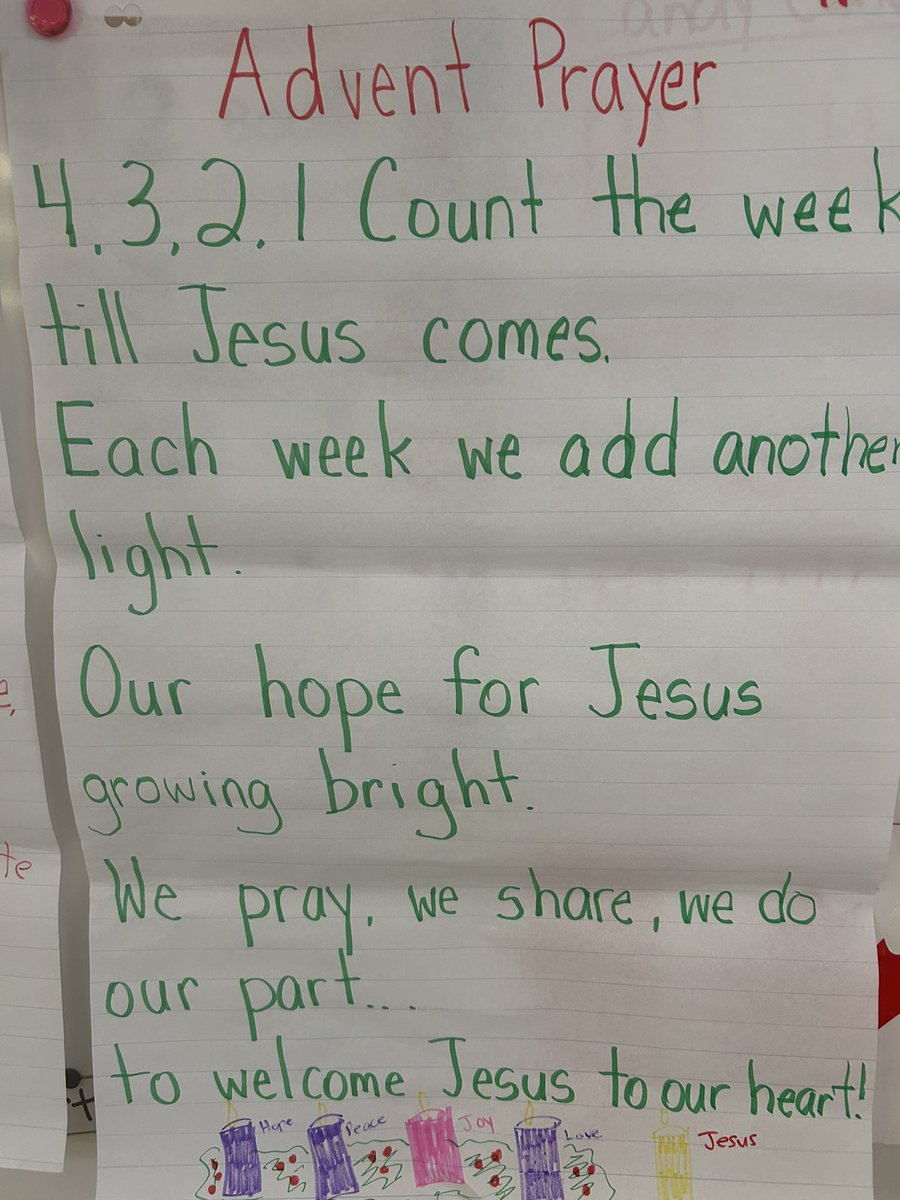 Advent Prayer
4,3,2,1 Count the week
till Jesus comes.
Each week we add another
light.
Our hope for Jesus
growing bright.
We pray, we share, we do
our part...
to welcome Jesus to our heart!
Hope Peace Joy Love Jesus